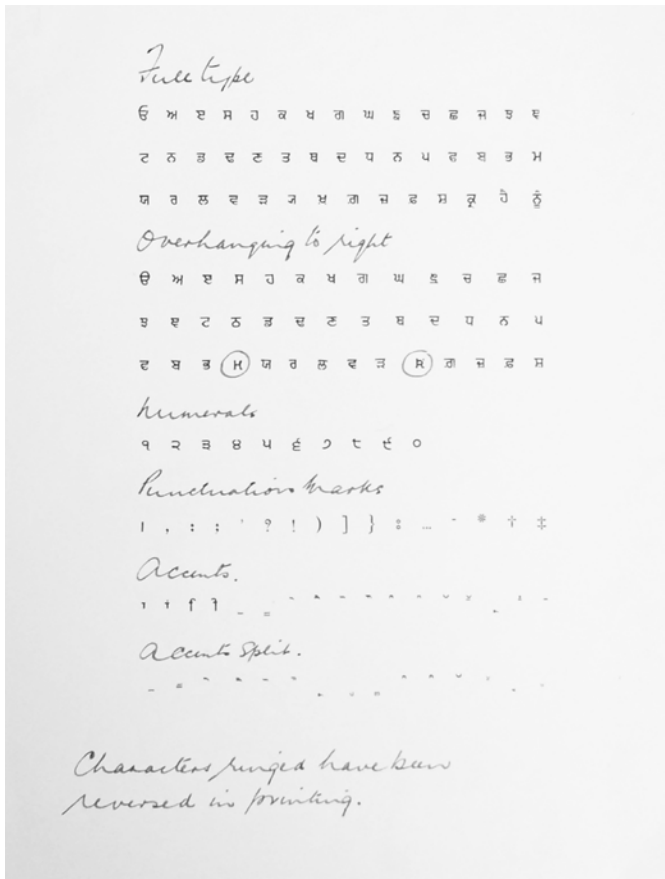 Full type
ਓ ਅ ੲ ਸ ਹ ਕ ਖ ਗ ਘ ਙ ਚ ਛ ਜ ਝ ਞ
ਟ ਠ ਡ ਢ ਣ ਤ ਥ ਦ ਧ ਨ ਪ ਫ ਬ ਭ ਮ
ਯ ਰ ਲ ਵ ੜ ਖ਼ ਗ਼ ਜ਼ ਫ਼ ਸ਼ ਕ੍ਰ ਹੈ ਨੂੰ
Overhanging to right
ੳ ਅ ੲ ਸ ਹ ਕ ਖ ਗ ਘ ਙ ਚ ਛ ਜ
ਝ ਞ ਟ ਠ ਡ ਢ ਣ ਤ ਥ ਦ ਧ ਨ ਪ
ਫ ਬ ਭ ਮ ਯ ਰ ਲ ਵ ੜ ਗ਼ ਜ਼ ਫ਼ ਸ਼
Numerals
੧ ੨ ੩ ੪ ੫ ੬ ੭ ੮ ੯ ੦
Punctuation Marks
। , : ; ' ? ! ) ] } ° … - * † ‡
Accents.
Accents Split.
Characters ringed have been
reversed in printing.